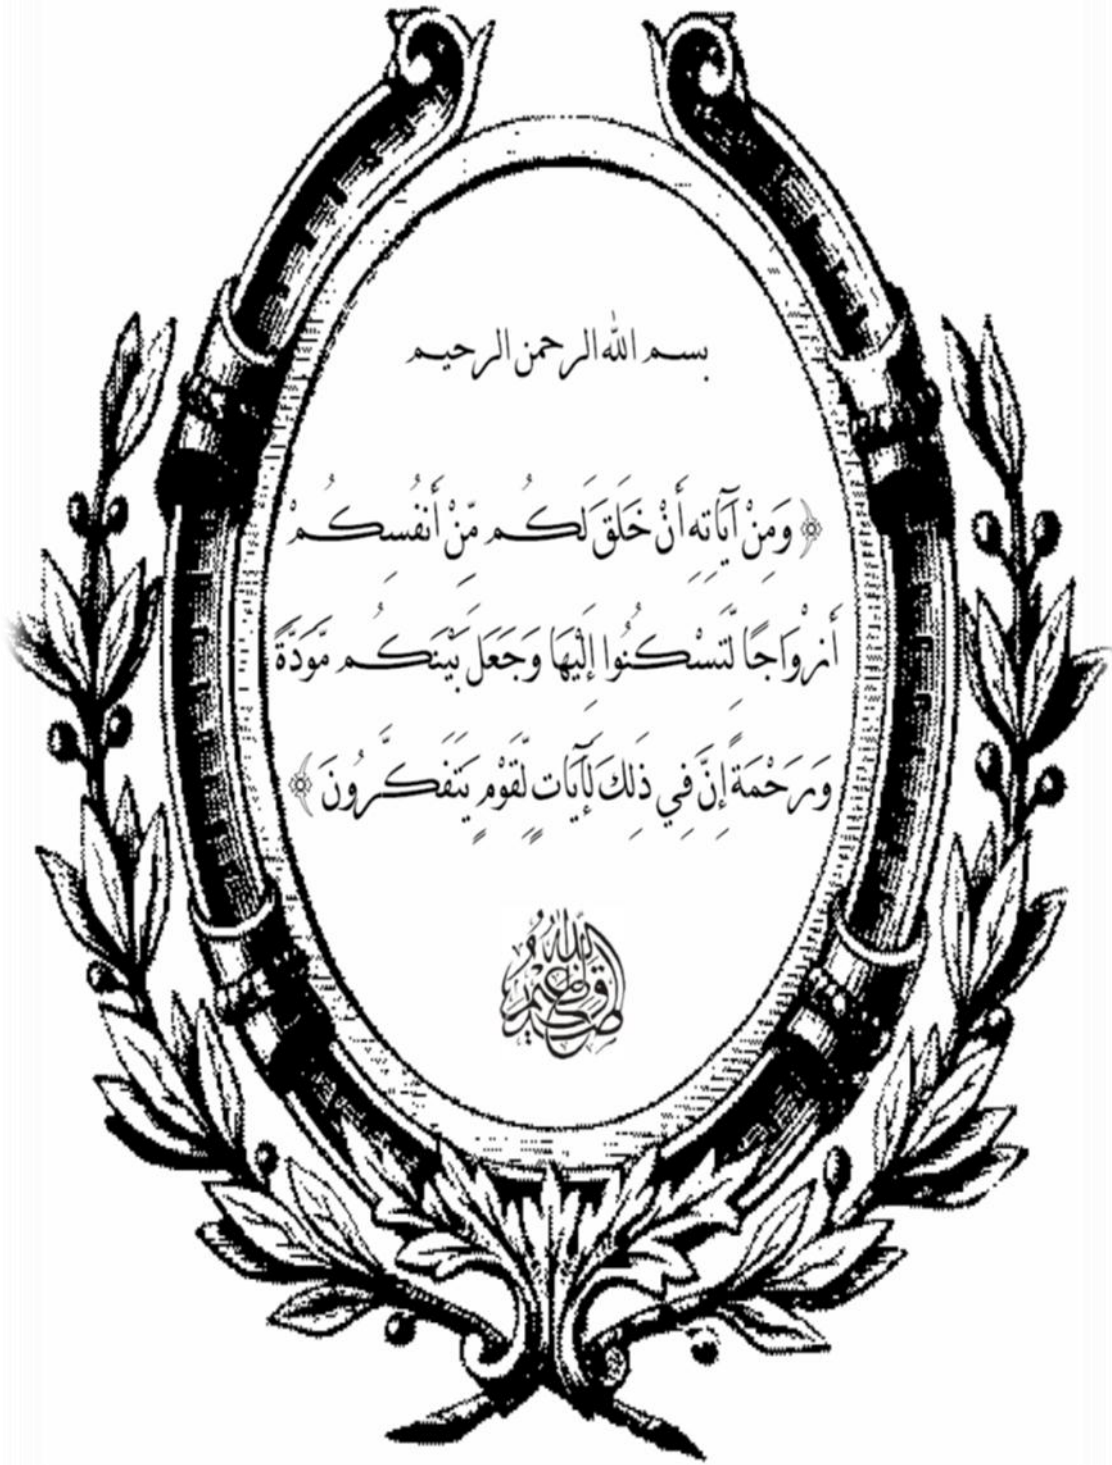 بسم الله الرحمن الرحيم
﴿ وَمِنْ آيَاتِهِ أَنْ خَلَقَ لَكُم مِّنْ أَنفُسِكُمْ
أَزْوَاجًا لِّتَسْكُنُوا إِلَيْهَا وَجَعَلَ بَيْنَكُم مَّوَدَّةً
وَرَحْمَةً إِنَّ فِي ذَلِكَ لَآيَاتٍ لِّقَوْمٍ يَتَفَكَّرُونَ ﴾
صدق الله العظيم